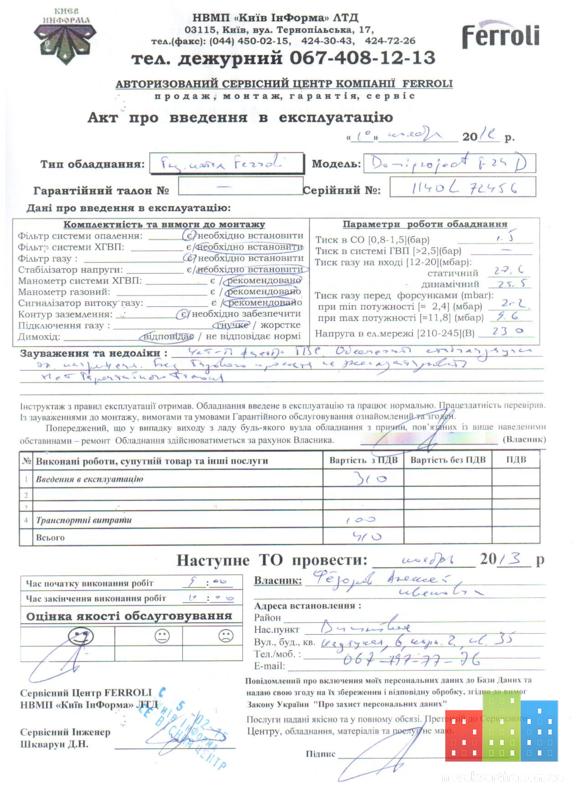 КИЕВ
ИНФОРМА
НВМП «Київ ІнФорма» ЛТД
03115, Київ, вул. Тернопільська, 17,
тел.(факс): (044) 450-02-15, 424-30-43, 424-72-26
тел. дежурний 067-408-12-13
Ferroli
АВТОРИЗОВАНИЙ СЕРВІСНИЙ ЦЕНТР КОМПАНІЇ FERROLI
продаж, монтаж, гарантія, сервіс
Акт про введення в експлуатацію
«10» ноября 2012 р.
Тип обладнання: Ferroli Модель: Domiproject F24 D
Гарантійний талон № — Серійний №: 1140L 72456
Дані про введення в експлуатацію:
Комплектність та вимоги до монтажу
Фільтр системи опалення: є/необхідно встановити
Фільтр системи ХГВП: є/необхідно встановити
Фільтр газу: є/необхідно встановити
Стабілізатор напруги: є/необхідно встановити
Манометр системи ХГВП: є / рекомендовано
Манометр газовий: є / рекомендовано
Сигналізатор витоку газу: є / рекомендовано
Контур заземлення: є/необхідно забезпечити
Підключення газу: гнучке / жорстке
Димохід: відповідає / не відповідає нормі
Параметри роботи обладнання
Тиск в СО [0,8-1,5](бар) 1.5
Тиск в системі ГВП [>2,5](бар) —
Тиск газу на вході [12-20](мбар):
статичний 27.6
динамічний 25.5
Тиск газу перед форсунками (mbar):
при min потужності [= 2,4] (мбар) 2.2
при max потужності [=11,8] (мбар) 9.6
Напруга в ел.мережі [210-245](В) 230
Зауваження та недоліки :
Інструктаж з правил експлуатації отримав. Обладнання введене в експлуатацію та працює нормально. Працездатність перевірив.
Із зауваженнями до монтажу, вимогами та умовами Гарантійного обслуговування ознайомлений та згоден.
Попереджений, що у випадку виходу з ладу будь-якого вузла обладнання з причин, пов'язаних із вище наведеними
обставинами – ремонт Обладнання здійснюватиметься за рахунок Власника.
(Власник)
№ Виконані роботи, супутній товар та інші послуги Вартість з ПДВ Вартість без ПДВ ПДВ
1 Введення в експлуатацію 310
2
3
4 Транспортні витрати 100
Всього 410
Наступне ТО провести: ноябрь 2013 р
Час початку виконання робіт 9 : 00
Час закінчення виконання робіт 10 : 00
Оцінка якості обслуговування
Власник: Федоров Алексей
Иванович
Адреса встановлення :
Район
Нас.пункт Вишневая
Вул., буд., кв. 6, корп. 2, кв. 35
Тел./моб. : 067-197-77-76
E-mail:
Повідомлений про включення моїх персональних даних до Бази Даних та
надаю свою згоду на їх збереження і відповідну обробку, згідно до вимог
Закону України "Про захист персональних даних"
Послуги надані якісно та у повному обсязі. Претензій до Сервісного
Центру, обладнання, матеріалів та послуг не маю.
Підпис
Сервісний Центр FERROLI
НВМП «Київ ІнФорма» ЛТД
Сервісний Інженер
Шкварун Д.Н.